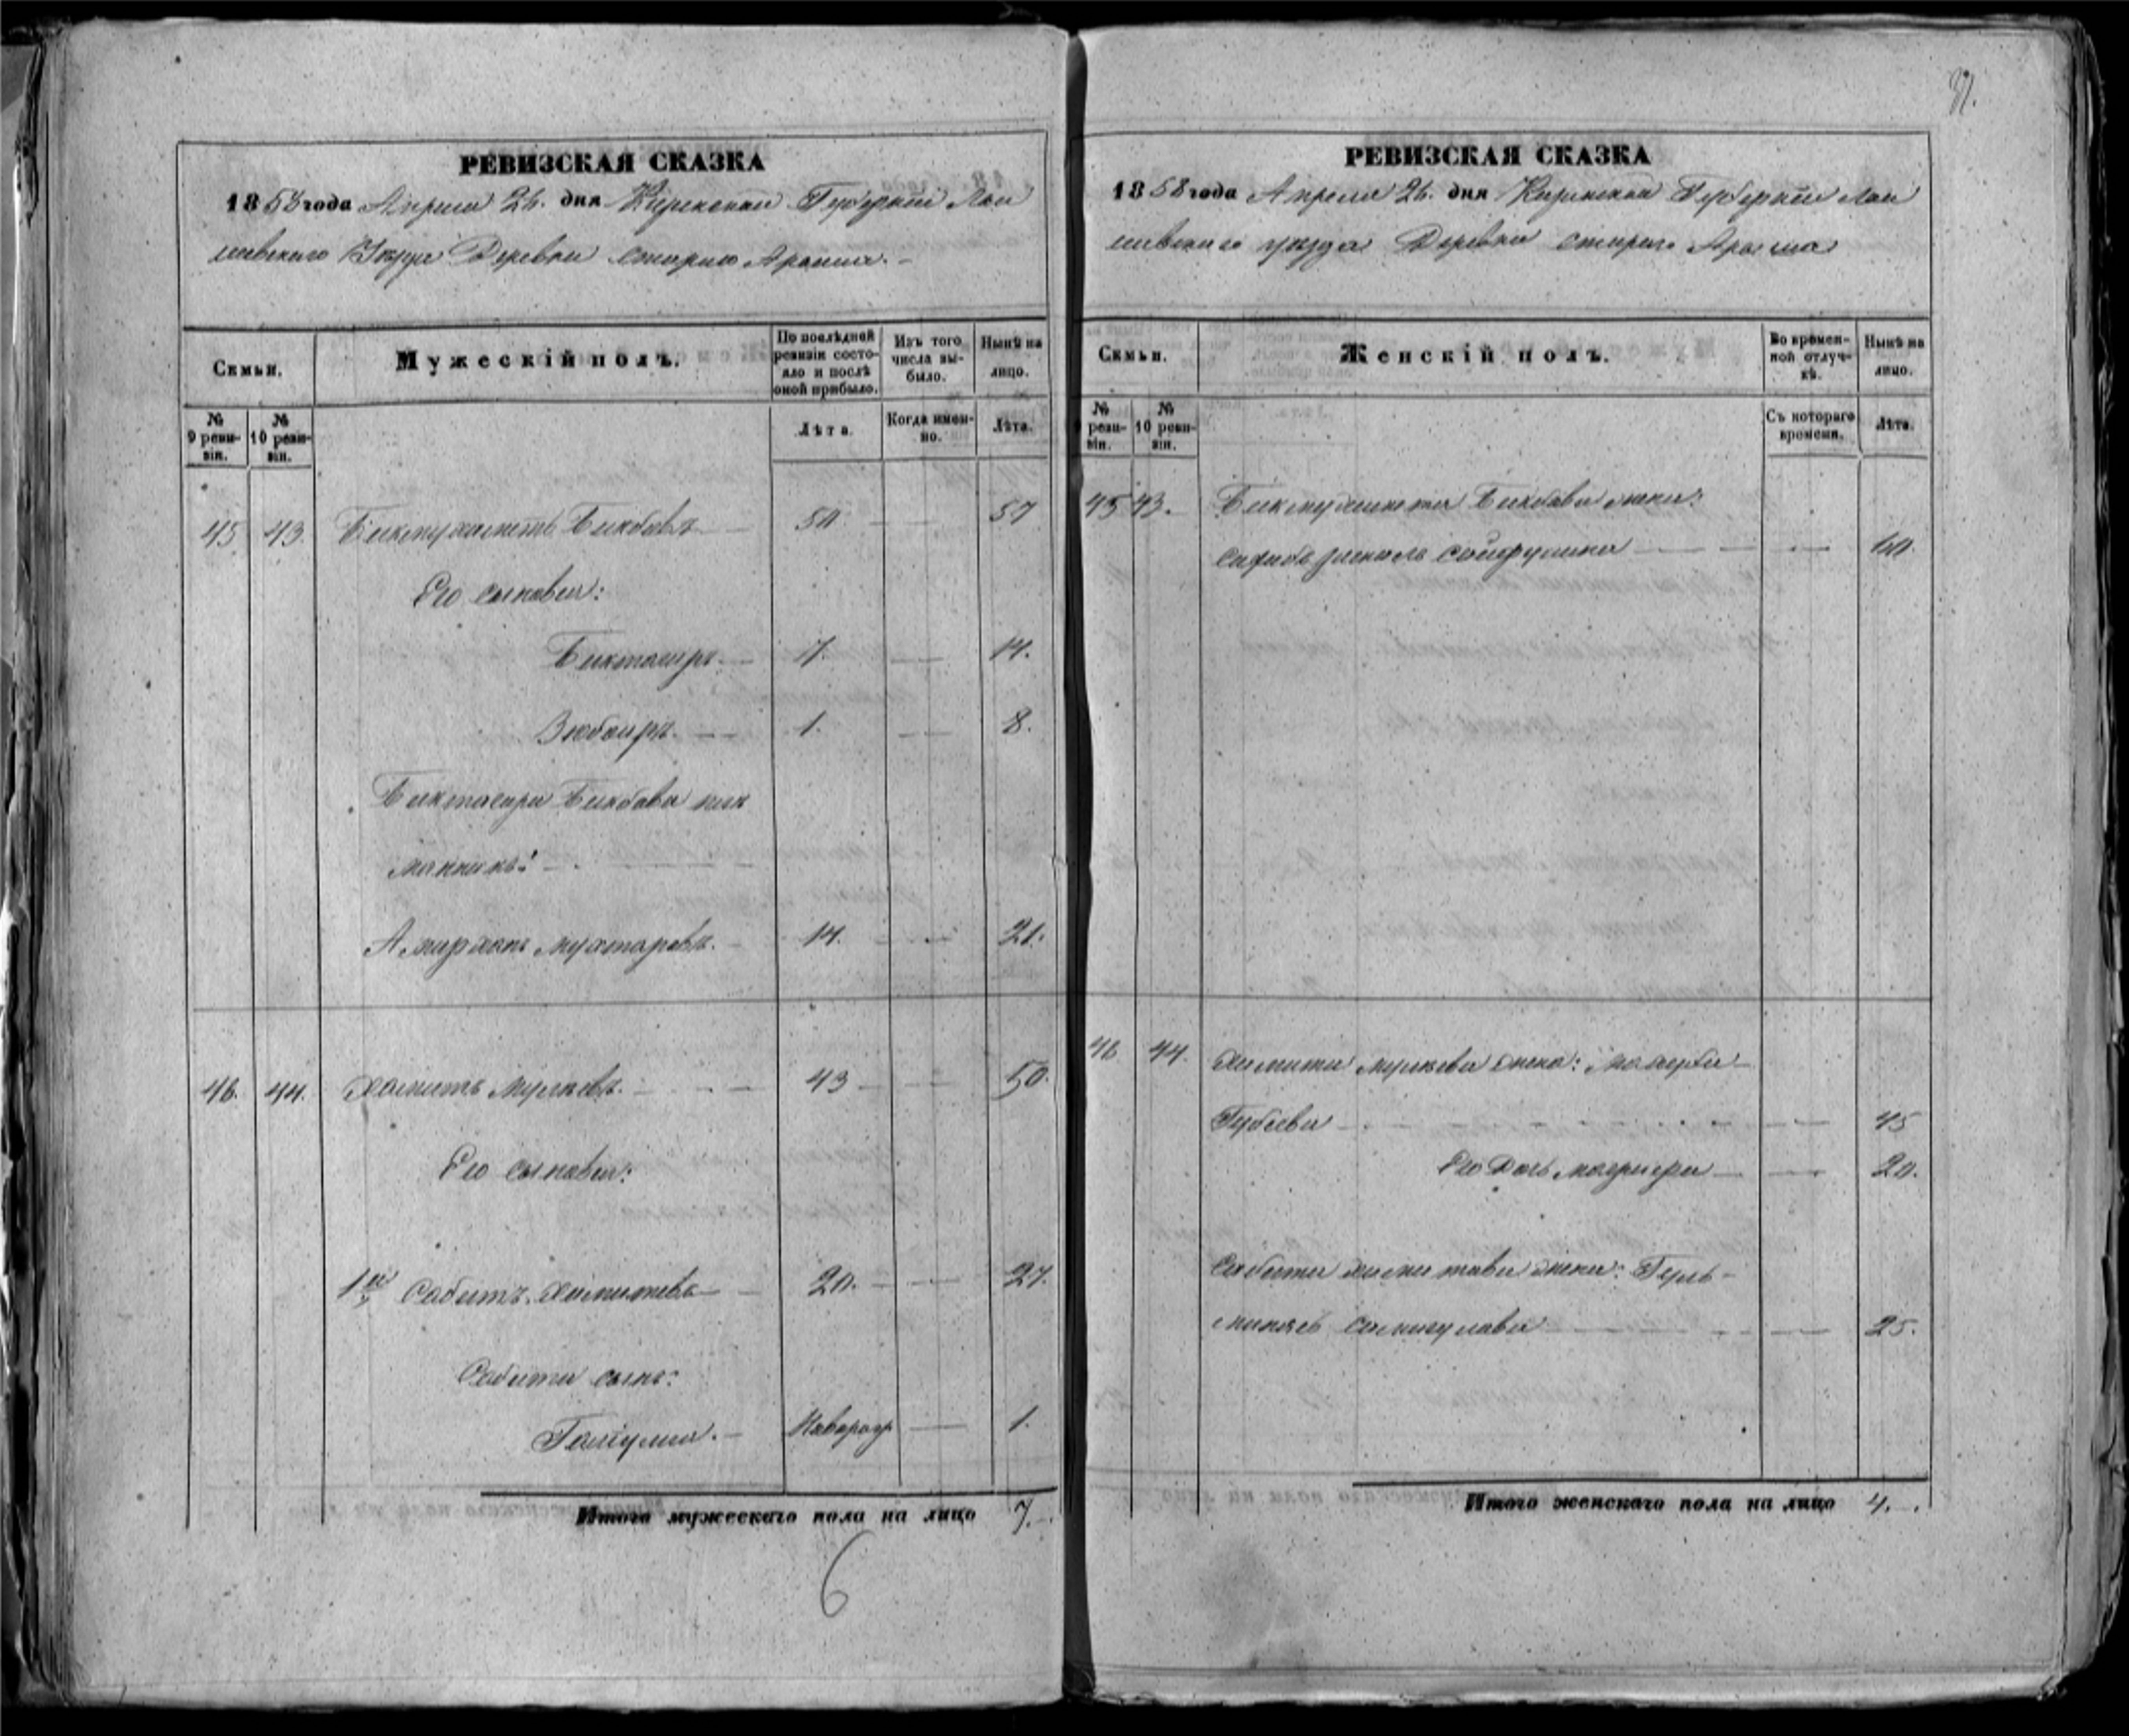 РЕВИЗСКАЯ СКАЗКА
1858 года Апреля 26. дня Казанской Губернии Лаи
шевского Уезда Деревни Старого Аракша.
Семьи.
Мужескій полъ.
По послѣдней ревизіи состояло и послѣ оной прибыло.
Изъ того числа выбыло.
Нынѣ на лицо.
№ 9 ревизіи.
№ 10 ревизіи.
Лѣта.
Когда именно.
Лѣта.
45. 43. Бикмухаметъ Бикбавъ 50. 57
Его сыновья:
Биктагиръ 7. 14.
Зюбаиръ 1. 8.
Биктагира Бикбава
Амирханъ Мухтаровъ. 14. 21.
46. 44. Хамитъ 43 50.
Его сыновья:
1й Сабитъ Хамитовъ 20. 27.
Сабита сынъ:
Галіулла. Новорож 1.
Итого мужескаго пола на лицо 7.
6
РЕВИЗСКАЯ СКАЗКА
1858 года Апреля 26. дня Казанской Губернии Лаи
шевского уезда Деревни Старого Аракша
Семьи.
Женскій полъ.
Во временной отлучкѣ.
Нынѣ на лицо.
№ 9 ревизіи.
№ 10 ревизіи.
Съ котораго времени.
Лѣта.
45 43. Бикмухамета Бикбава жена:
Сайфулина 60.
46 44. Хамита жена:
Губеева 45
Его дочь 20.
Сабита Хамитова жена: Гуль-
25.
Итого женскаго пола на лицо 4.